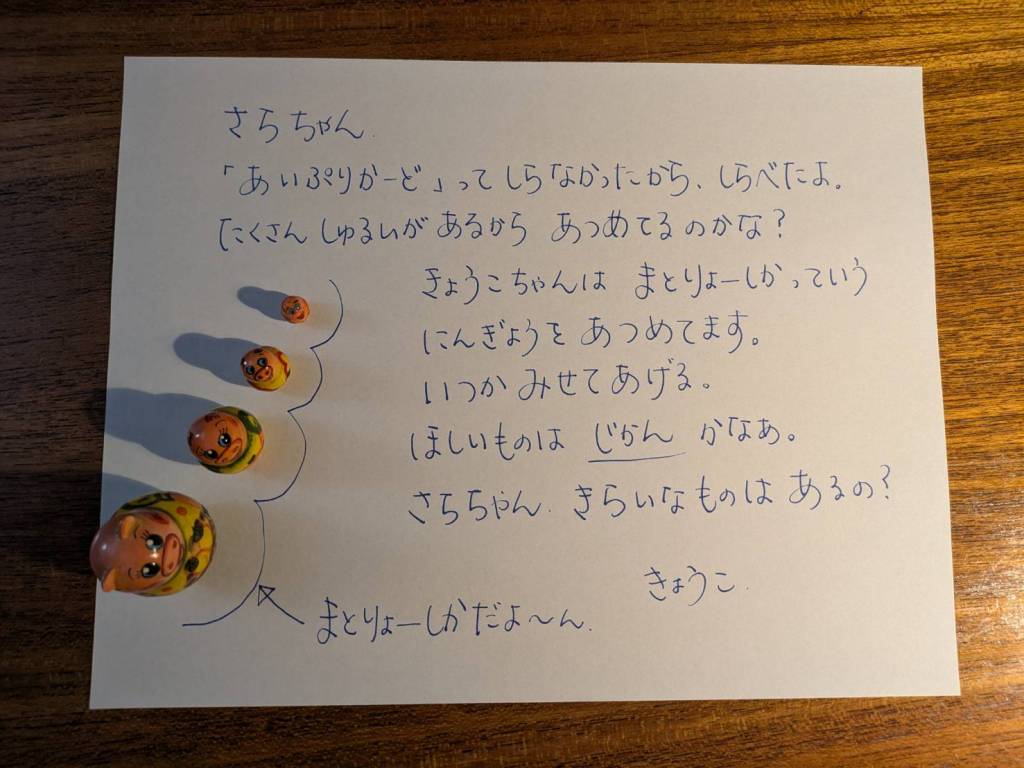 さらちゃん.
「あいぷりかーど」ってしらなかったから、しらべたよ。
たくさんしゅるいがあるから あつめてるのかな?
きょうこちゃんは まとりょーしかっていう
にんぎょうを あつめてます。
いつか みせてあげる。
ほしいものは じかん かなぁ。
さらちゃん. きらいなものは あるの?
きょうこ.
まとりょーしかだよ〜ん.